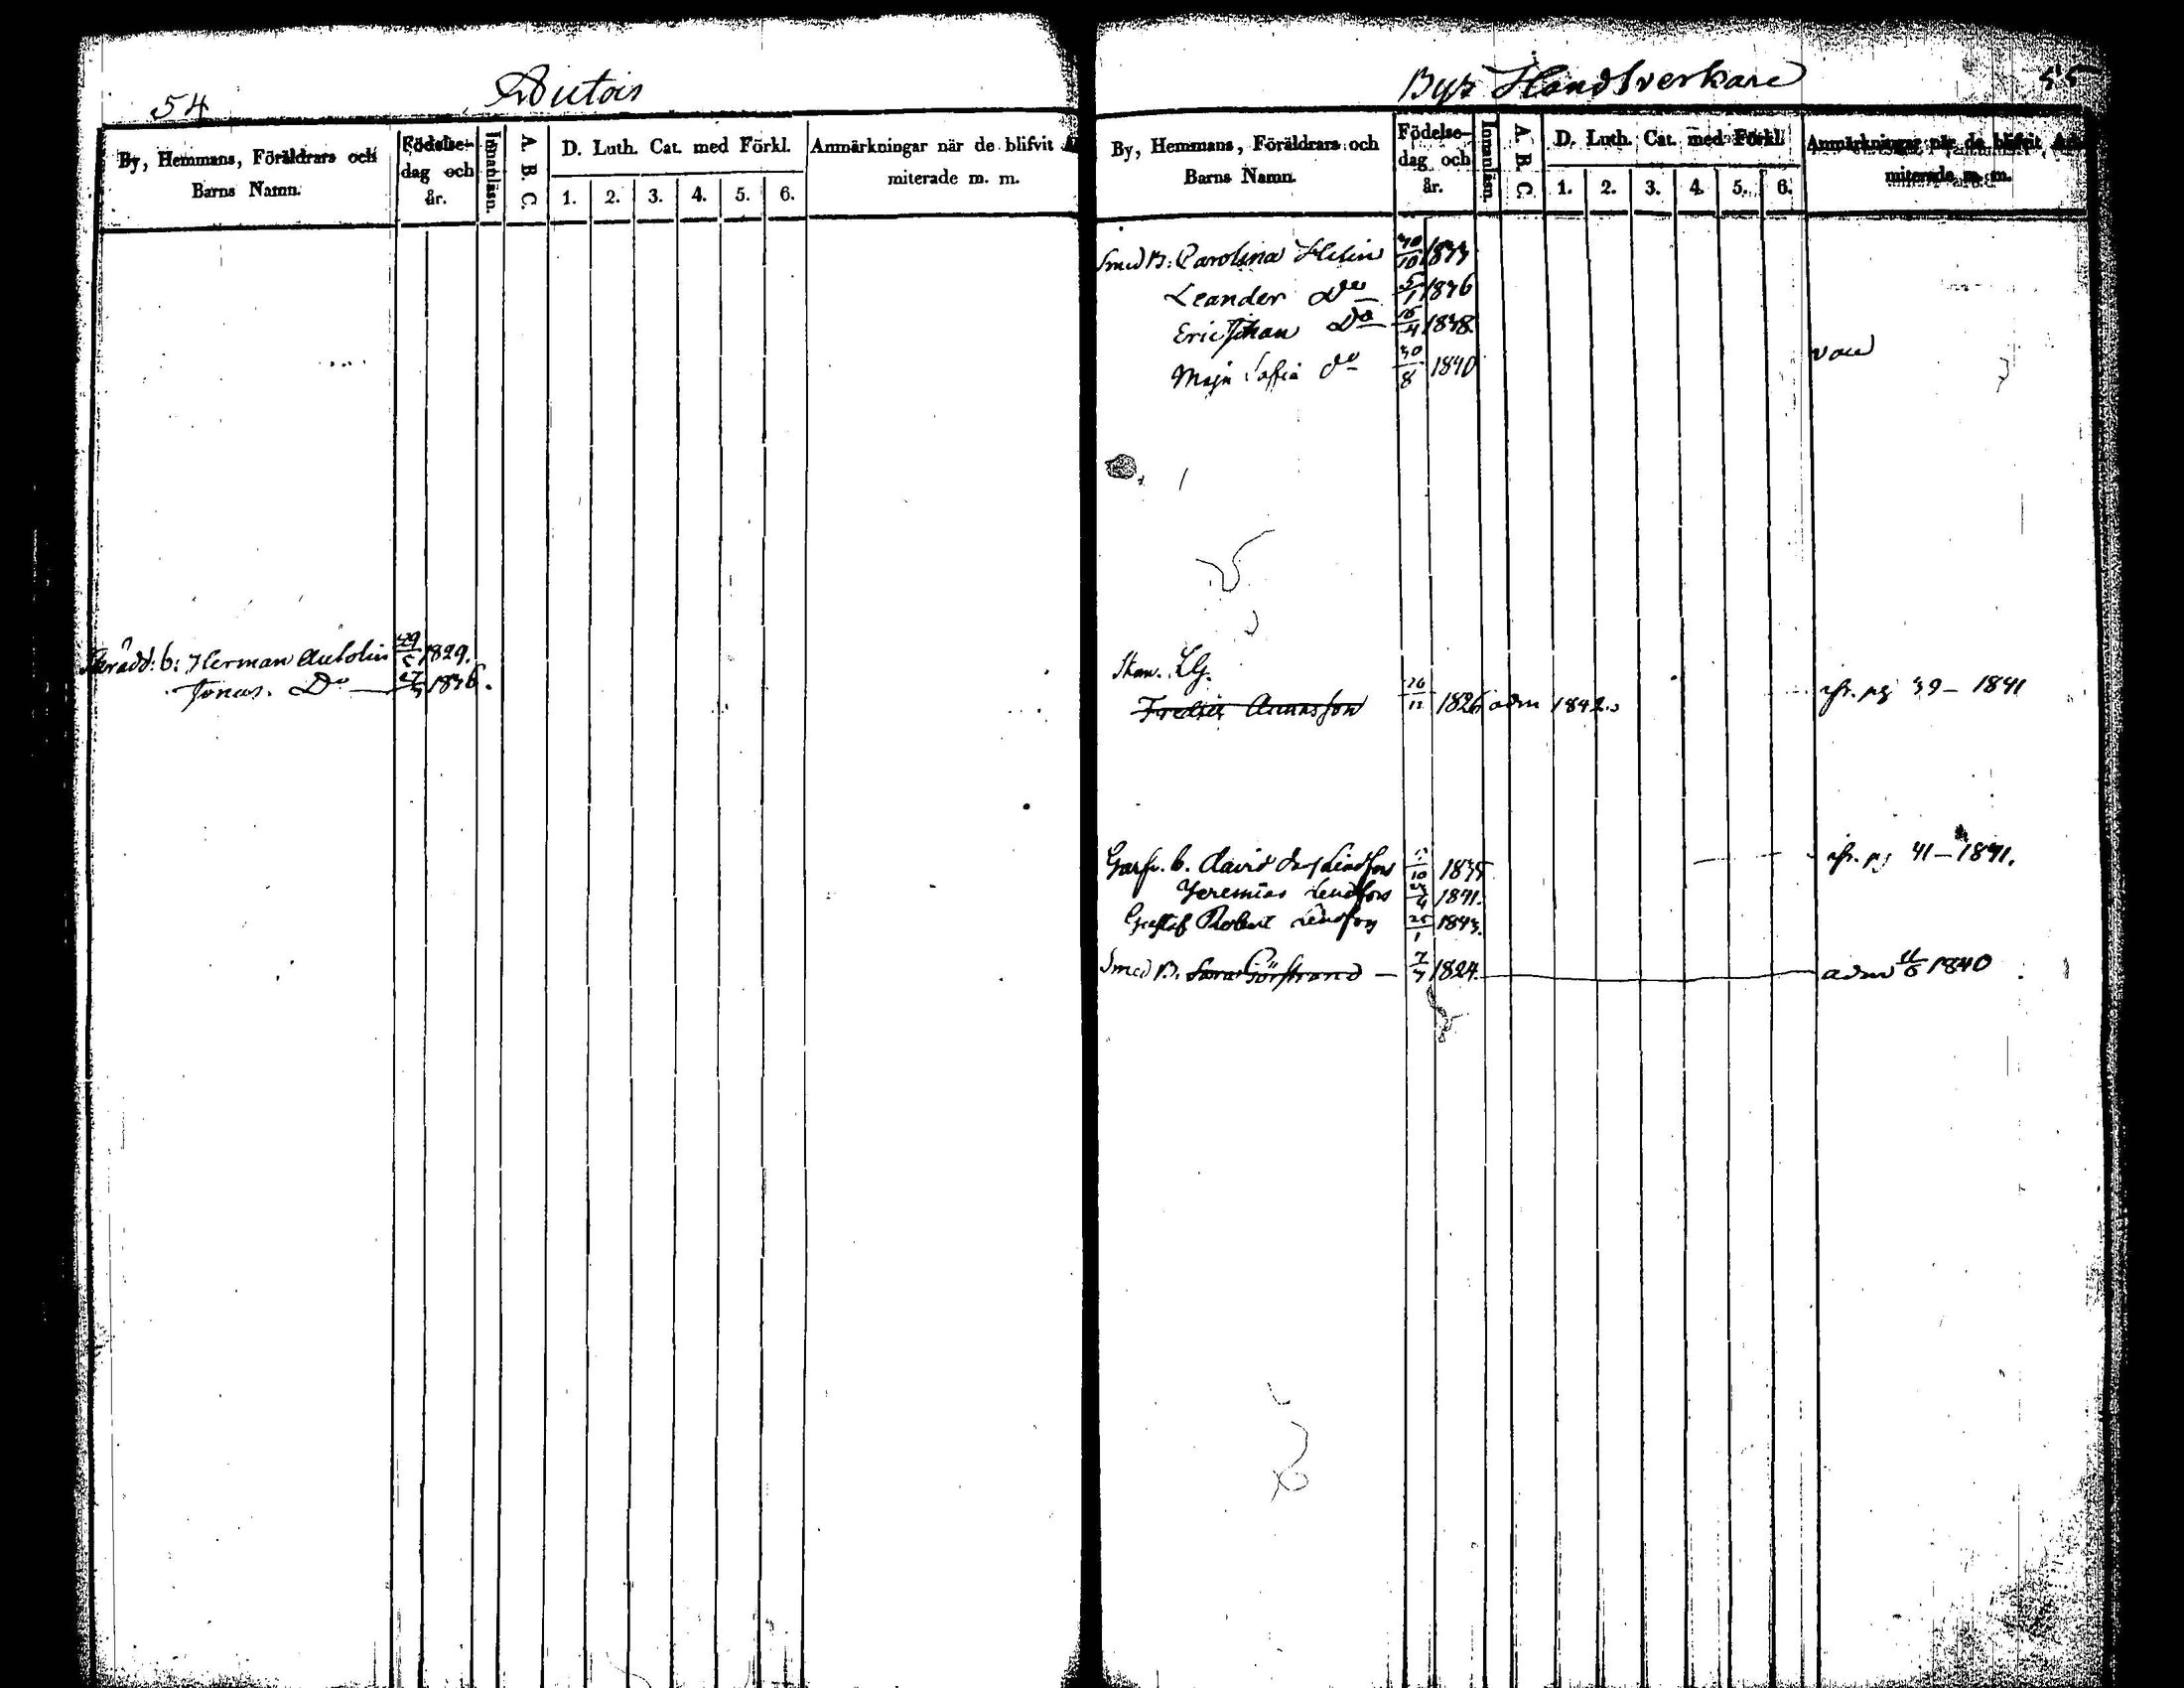 54
Autois
By, Hemmans, Föräldrars och
Barns Namn.
Födelse-
dag och
år.
Innanläsn.
A. B. C.
D. Luth. Cat. med Förkl.
1. 2. 3. 4. 5. 6.
Anmärkningar när de blifvit
miterade m. m.
b: Herman Autolin 29 1829.
Jonas. Do 27 1836.
Bys Handtverkare
55
By, Hemmans, Föräldrars och
Barns Namn.
Födelse-
dag och
år.
Innanläsn.
A. B. C.
D. Luth. Cat. med Förkl.
1. 2. 3. 4. 5. 6.
Anmärkningar när de blifvit
miterade m. m.
Smed B: Carolina Helin 30/10 1833
Leander Do 5/1 1836
Eric Johan Do 16/4 1838.
Maja Sofia do 30/8 1840
26/12 1826 adm 1842. pg 39 - 1841
Garfv. b. David Lindfors /10 1835 pg 41 - 1841.
Jeremias Lindfors /4 1841.
Gustaf Robert Lindfors 25/1 1843.
Smed B. 7/7 1824. adm 1840